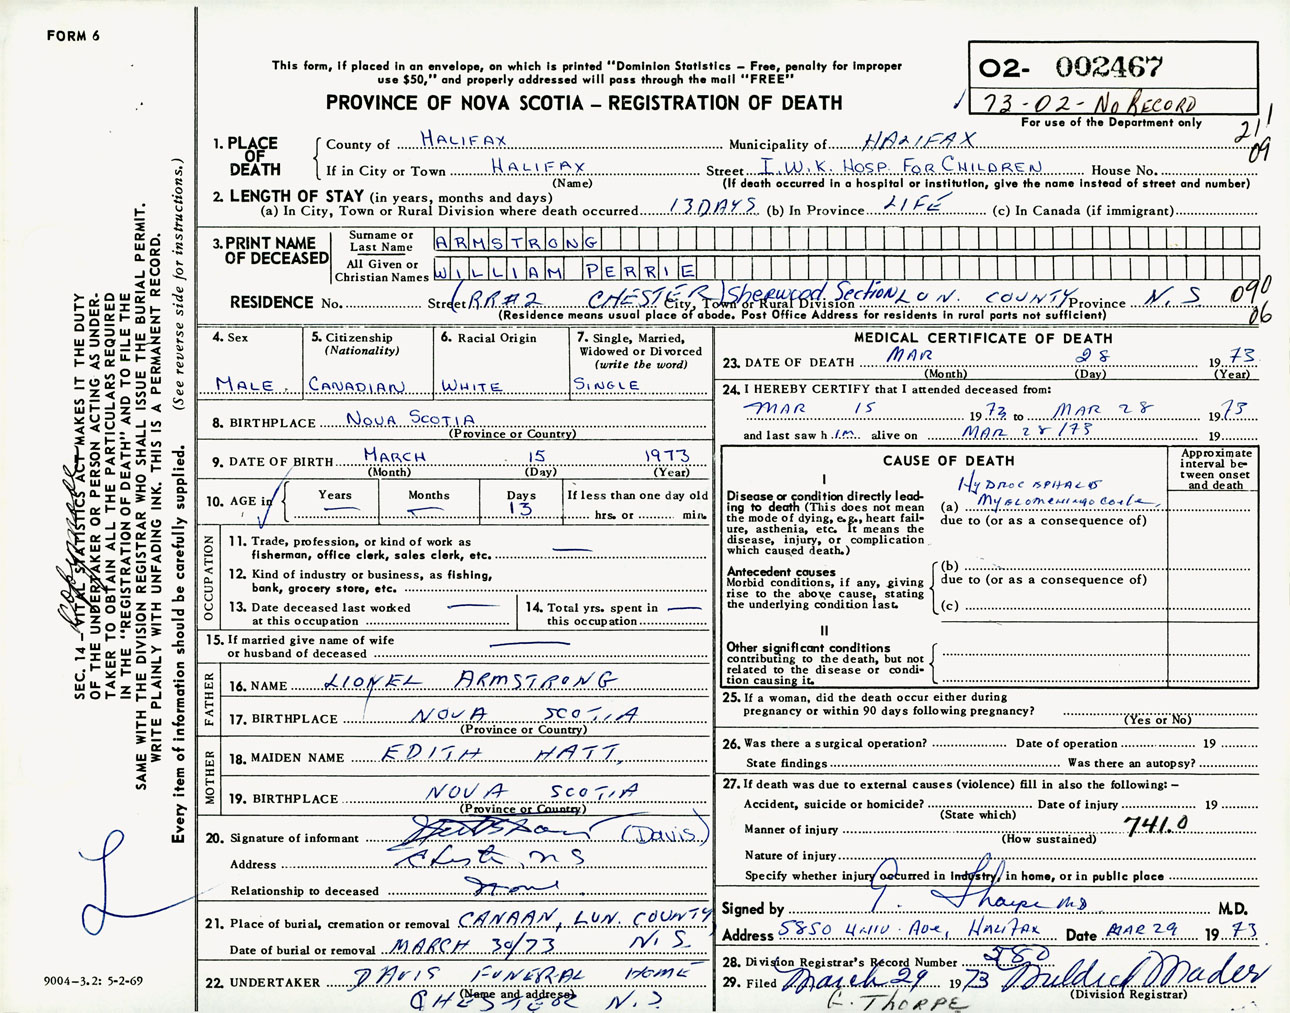 FORM 6
This form, if placed in an envelope, on which is printed "Dominion Statistics – Free, penalty for improper
use $50," and properly addressed will pass through the mail "FREE"
PROVINCE OF NOVA SCOTIA – REGISTRATION OF DEATH
02- 002467
73-02-NO RECORD
For use of the Department only
211
09
1. PLACE OF DEATH
County of HALIFAX Municipality of HALIFAX
If in City or Town HALIFAX Street I.W.K. HOSP. FOR CHILDREN House No.
(Name) (If death occurred in a hospital or institution, give the name instead of street and number)
2. LENGTH OF STAY (in years, months and days)
(a) In City, Town or Rural Division where death occurred 13 DAYS (b) In Province LIFE (c) In Canada (if immigrant)
3. PRINT NAME OF DECEASED
Surname or Last Name ARMSTRONG
All Given or Christian Names WILLIAM PERRIE
RESIDENCE No. Street (RR#2 CHESTER) Sherwood Section LUN. COUNTY City, Town or Rural Division Province N.S 090
(Residence means usual place of abode. Post Office Address for residents in rural parts not sufficient) 06
4. Sex MALE
5. Citizenship (Nationality) CANADIAN
6. Racial Origin WHITE
7. Single, Married, Widowed or Divorced (write the word) SINGLE
8. BIRTHPLACE NOVA SCOTIA
(Province or Country)
9. DATE OF BIRTH MARCH 15 1973
(Month) (Day) (Year)
10. AGE in Years — Months — Days 13 If less than one day old hrs. or min.
OCCUPATION
11. Trade, profession, or kind of work as fisherman, office clerk, sales clerk, etc. —
12. Kind of industry or business, as fishing, bank, grocery store, etc.
13. Date deceased last worked at this occupation —
14. Total yrs. spent in this occupation —
15. If married give name of wife or husband of deceased —
FATHER
16. NAME LIONEL ARMSTRONG
17. BIRTHPLACE NOVA SCOTIA
(Province or Country)
MOTHER
18. MAIDEN NAME EDITH HATT,
19. BIRTHPLACE NOVA SCOTIA
(Province or Country)
20. Signature of informant (DAVIS)
Address Chester, N S
Relationship to deceased None
21. Place of burial, cremation or removal CANAAN, LUN. COUNTY
Date of burial or removal MARCH 30/73 N.S
22. UNDERTAKER DAVIS FUNERAL HOME
(Name and address) CHESTER N.S
MEDICAL CERTIFICATE OF DEATH
23. DATE OF DEATH MAR 28 1973
(Month) (Day) (Year)
24. I HEREBY CERTIFY that I attended deceased from:
MAR 15 1973 to MAR 28 1973
and last saw h im alive on MAR 28/73 19
CAUSE OF DEATH
Approximate interval between onset and death
I
Disease or condition directly leading to death (This does not mean the mode of dying, e.g., heart failure, asthenia, etc. It means the disease, injury, or complication which caused death.)
(a) HYDROCEPHALUS
MYELOMENINGOCOELE,
due to (or as a consequence of)
Antecedent causes
Morbid conditions, if any, giving rise to the above cause, stating the underlying condition last.
(b)
due to (or as a consequence of)
(c)
II
Other significant conditions
contributing to the death, but not related to the disease or condition causing it.
25. If a woman, did the death occur either during
pregnancy or within 90 days following pregnancy?
(Yes or No)
26. Was there a surgical operation? Date of operation 19
State findings Was there an autopsy?
27. If death was due to external causes (violence) fill in also the following:–
Accident, suicide or homicide? Date of injury 19
(State which)
Manner of injury 741.0
(How sustained)
Nature of injury
Specify whether injury occurred in Industry, in home, or in public place
Signed by G. Thorpe MD M.D.
Address 5850 UNIV. AVE, HALIFAX Date MAR 29 1973
28. Division Registrar's Record Number 580
29. Filed March 29 1973 Mildred Mader
(Division Registrar)
G. THORPE
SEC. 14 – VITAL STATISTICS ACT MAKES IT THE DUTY
OF THE UNDERTAKER OR PERSON ACTING AS UNDER-
TAKER TO OBTAIN ALL THE PARTICULARS REQUIRED
IN THE "REGISTRATION OF DEATH" AND TO FILE THE
SAME WITH THE DIVISION REGISTRAR WHO SHALL ISSUE THE BURIAL PERMIT.
WRITE PLAINLY WITH UNFADING INK. THIS IS A PERMANENT RECORD.
Every item of information should be carefully supplied. (See reverse side for instructions.)
L
9004–3.2: 5-2-69